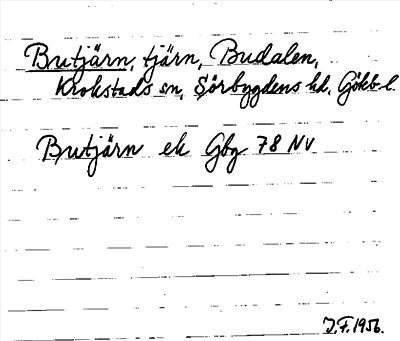 Butjärn, tjärn, Budalen,
Krokstads sn, Sörbygdens hd, Gökb l.
Butjärn ek Gbg 78 NV
J.F. 1956.